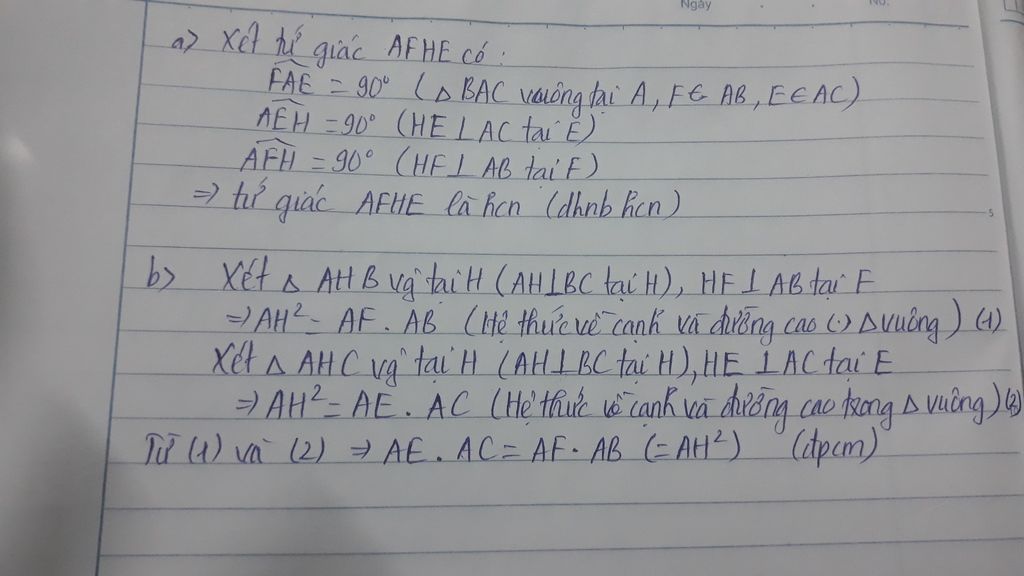 Ngày No.
a> Xét tứ giác AFHE có:
FAE = 90° (△ BAC vuông tại A, F∈ AB, E∈ AC)
AEH = 90° (HE⊥AC tại E)
AFH = 90° (HF⊥ AB tại F)
⇒ tứ giác AFHE là hcn (dhnb hcn)
5
b> Xét △ AHB vg tại H (AH⊥BC tại H), HF⊥ AB tại F
⇒ AH² = AF . AB (Hệ thức về cạnh và đường cao (.) △ vuông) (1)
Xét △ AHC vg tại H (AH⊥BC tại H), HE ⊥AC tại E
⇒ AH² = AE . AC (Hệ thức về cạnh và đường cao trong △ vuông) (2)
Từ (1) và (2) ⇒ AE . AC = AF . AB (= AH²) (đpcm)